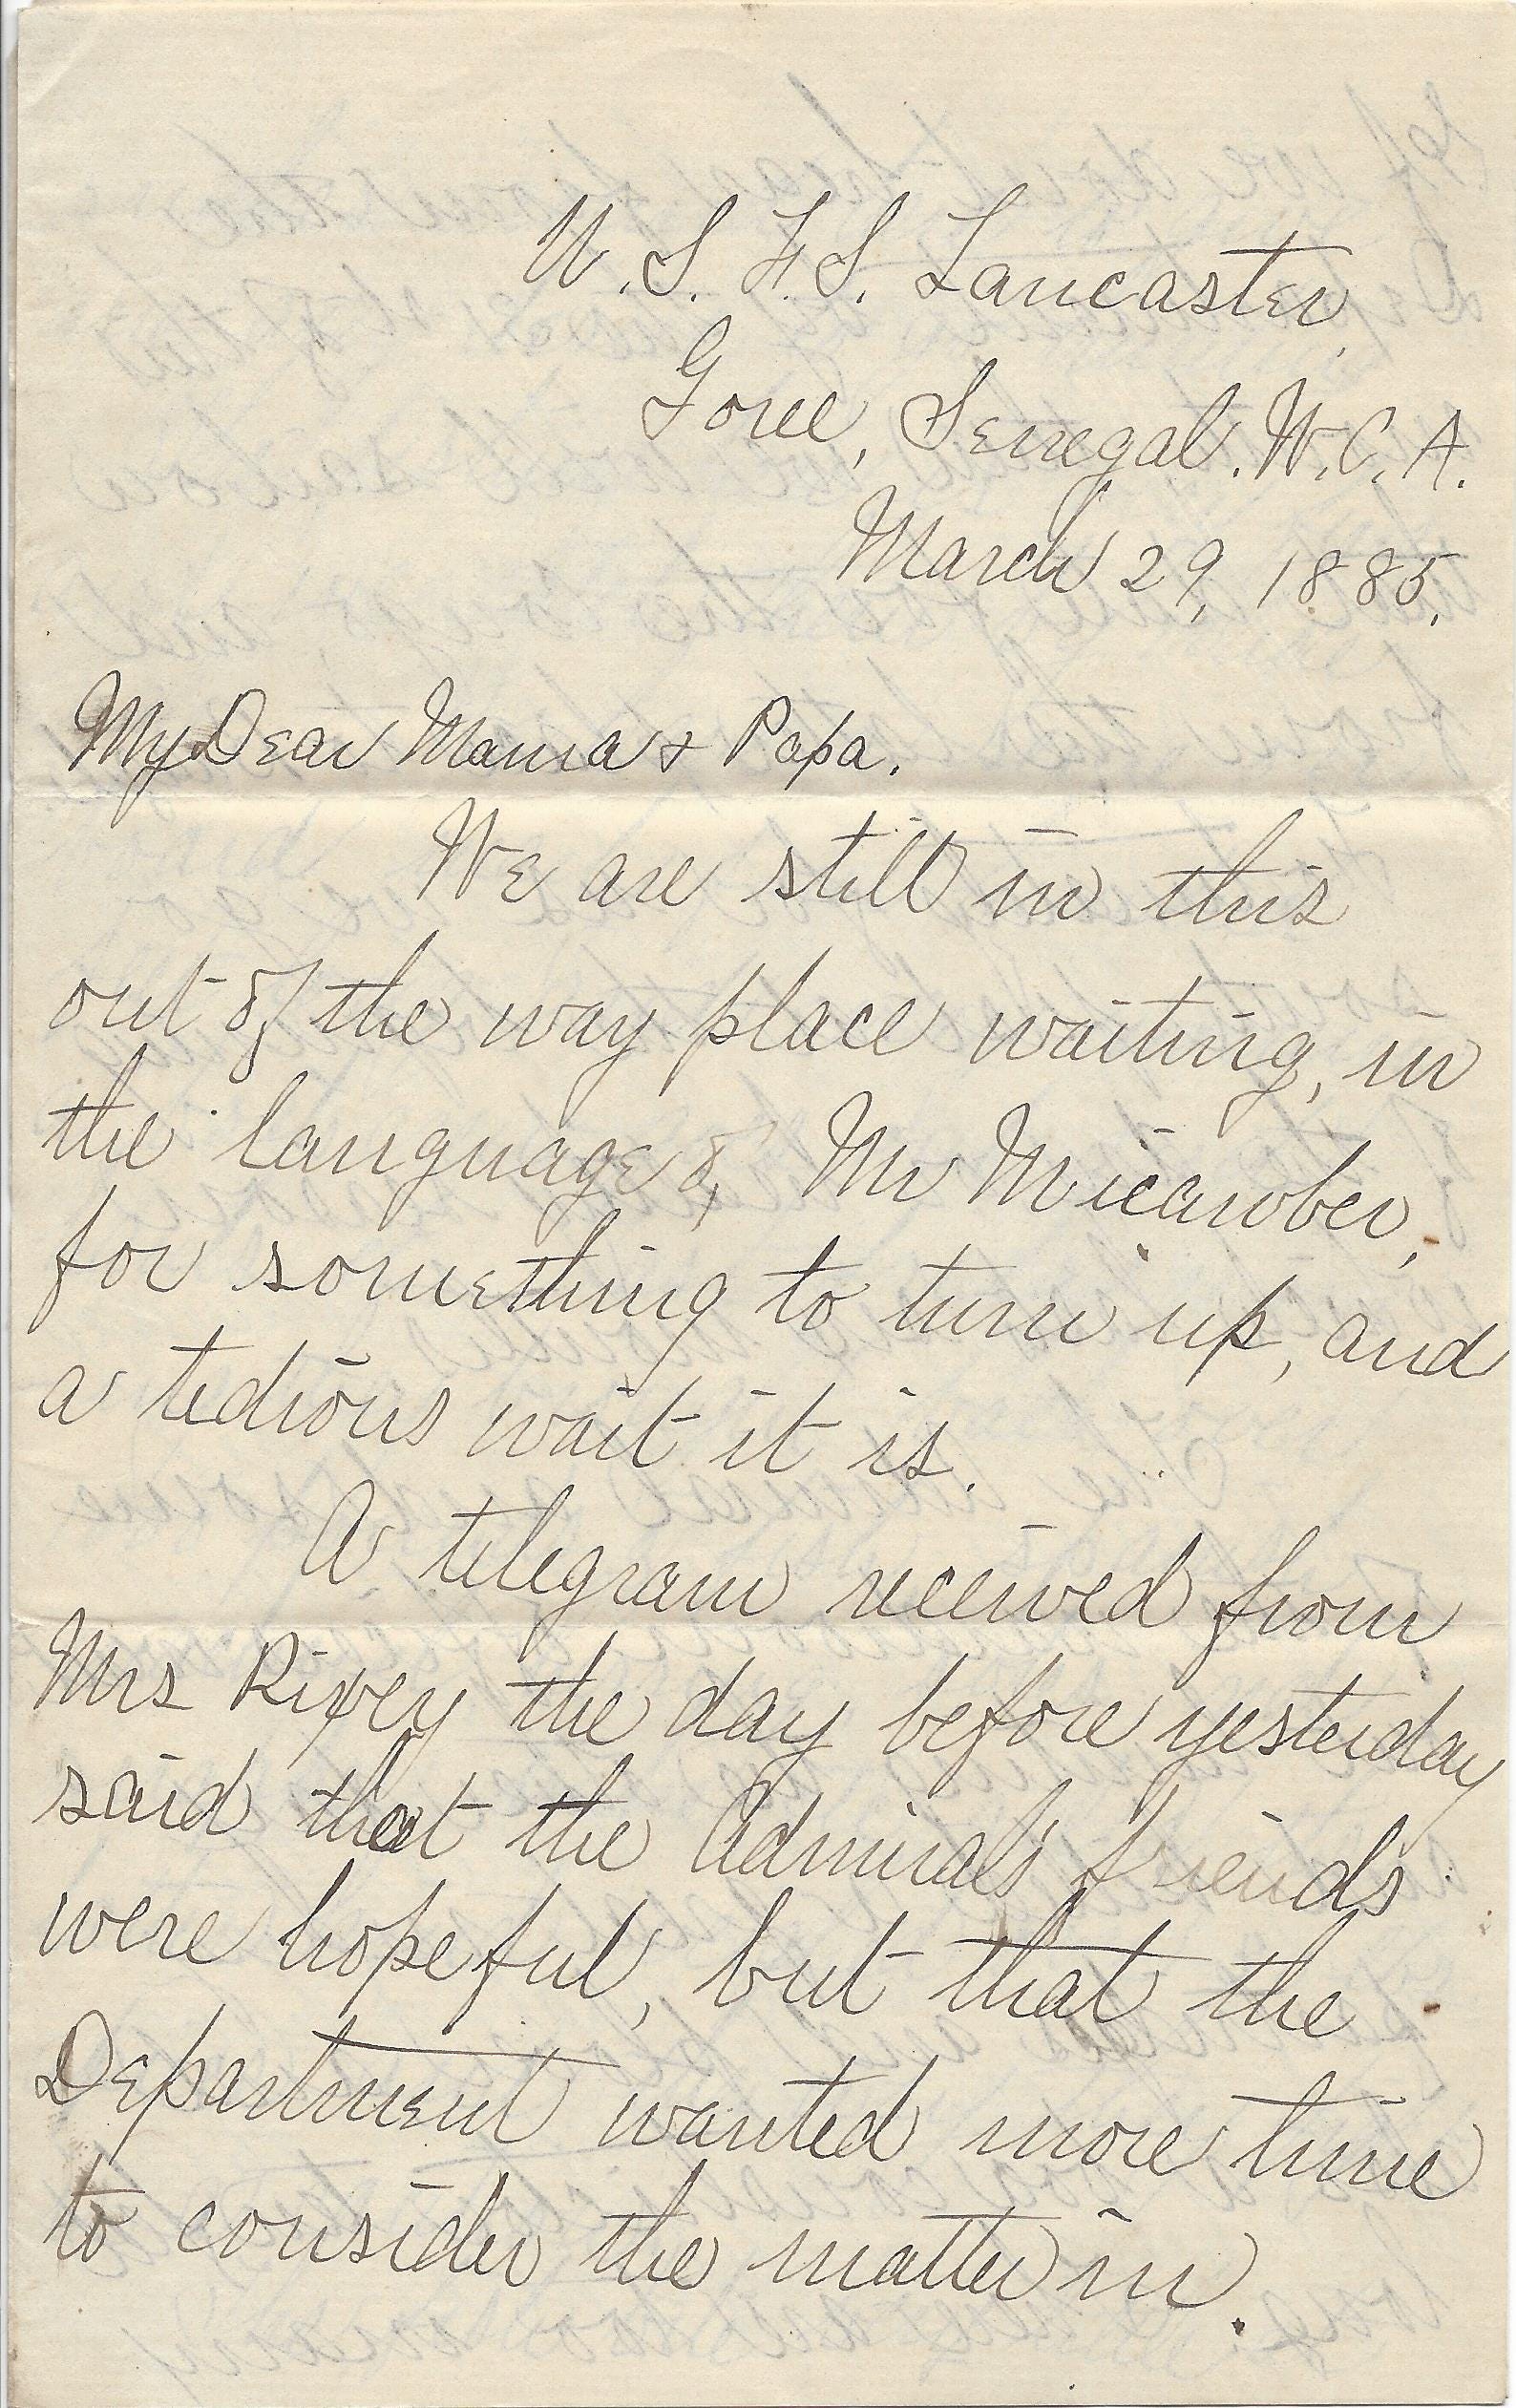 U.S.F.S. Lancaster,
Goree, Senegal. W.C.A.
March 29, 1885.
My Dear Mama & Papa.
We are still in this
out of the way place waiting, in
the language of Mr Micawber,
for something to turn up, and
a tedious wait it is.
A telegram received from
Mrs Rixey the day before yesterday
said that the Admiral's friends
were hopeful, but that the
Department wanted more time
to consider the matter in.